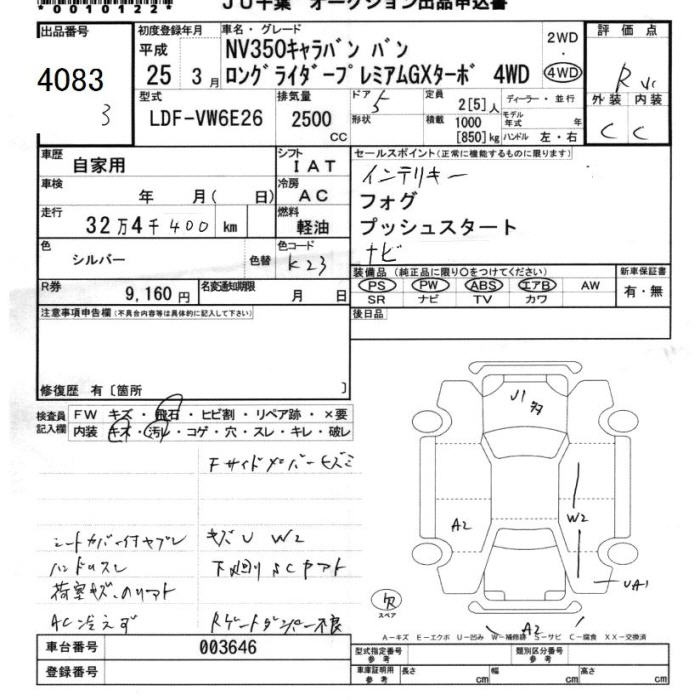 00101222
JU千葉 オークション出品申込書
出品番号
4083
3
初度登録年月
平成
25 3月
車名・グレード
NV350キャラバン バン
ロングライダープレミアムGXターボ 4WD
2WD
4WD
評価点
R
外装 内装
C C
型式
LDF-VW6E26
排気量
2500
CC
ドア
5
形状
定員
2[5]人
積載
1000
[850]kg
ディーラー・並行
モデル年式 年
ハンドル 左・右
車歴
自家用
シフト
IAT
車検
年 月( 日)
冷房
AC
走行
32万4千400km
燃料
軽油
色
シルバー
色替
色コード
K23
R券
9,160円
名変通知期限
月 日
セールスポイント(正常に機能するものに限ります)
インテリキー
フォグ
プッシュスタート
ナビ
装備品(純正品に限り○をつけてください)
PS PW ABS エアB AW
SR ナビ TV カワ
新車保証書
有・無
後日品
注意事項申告欄(不具合内容等は具体的に記入して下さい)
修復歴 有[箇所 ]
検査員記入欄
FW キズ・飛石・ヒビ割・リペア跡・×要
内装 キズ・汚レ・コゲ・穴・スレ・キレ・破レ
Fサイドメンバーキズミ
シートカバー付ヤブレ
キズU W2
ハンドルスレ
下廻りSCヤアト
荷室キズ、のリアト
AC冷えず
Rゲートダンパー不良
J1
A2
W2
UA1
A2
スペア
A-キズ E-エクボ U-凹み W-補修跡 S-サビ C-腐食 XX-交換済
車台番号
003646
登録番号
型式指定番号
参考
類別区分番号
参考
車庫証明用
参考
長さ cm
幅 cm
高さ cm